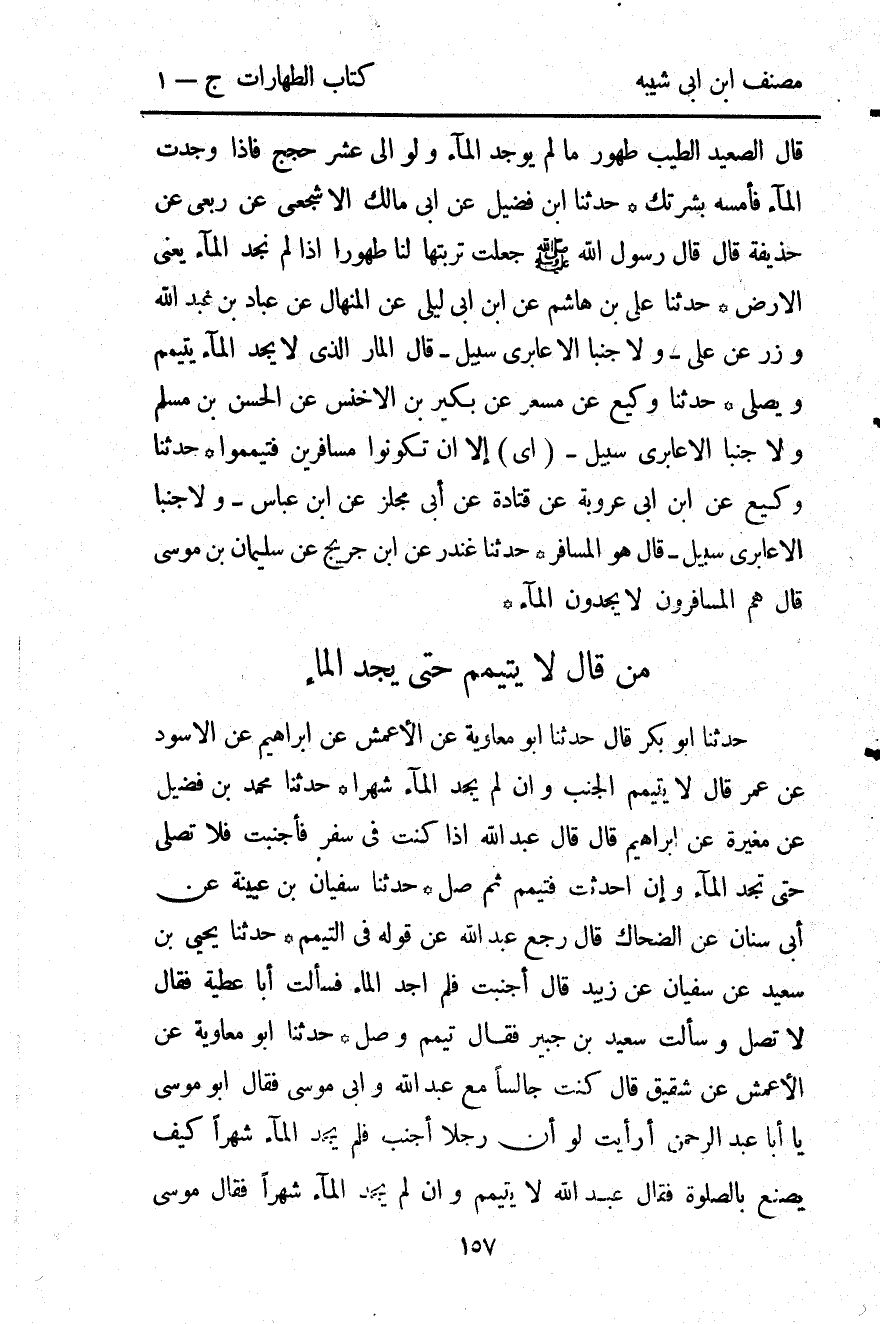 مصنف ابن ابى شيبه كتاب الطهارات ج — ١
قال الصعيد الطيب طهور ما لم يوجد المآء و لو الى عشر حجج فاذا وجدت
المآء فأمسه بشرتك * حدثنا ابن فضيل عن ابى مالك الاشجعى عن ربعى عن
حذيفة قال قال رسول الله ﷺ جعلت تربتها لنا طهورا اذا لم نجد المآء يعنى
الارض * حدثنا على بن هاشم عن ابن ابى ليلى عن المنهال عن عباد بن عبد الله
و زر عن على ـ و لا جنبا الا عابرى سبيل ـ قال المار الذى لا يجد المآء يتيمم
و يصلى * حدثنا وكيع عن مسعر عن بكير بن الاخنس عن الحسن بن مسلم
و لا جنبا الاعابرى سبيل ـ ( اى ) إلا ان تكونوا مسافرين فتيمموا * حدثنا
وكيع عن ابن ابى عروبة عن قتادة عن أبى مجلز عن ابن عباس ـ و لاجنبا
الاعابرى سبيل ـ قال هو المسافر * حدثنا غندر عن ابن جريج عن سليمان بن موسى
قال هم المسافرون لا يجدون المآء *
من قال لا يتيمم حتى يجد الماء
حدثنا ابو بكر قال حدثنا ابو معاوية عن الأعمش عن ابراهيم عن الاسود
عن عمر قال لا يتيمم الجنب و ان لم يجد المآء شهرا * حدثنا محمد بن فضيل
عن مغيرة عن ابراهيم قال قال عبد الله اذا كنت فى سفر فأجنبت فلا تصلى
حتى تجد المآء و إن احدثت فتيمم ثم صل * حدثنا سفيان بن عيينة عن
أبى سنان عن الضحاك قال رجع عبد الله عن قوله فى التيمم * حدثنا يحيى بن
سعيد عن سفيان عن زبيد قال أجنبت فلم اجد الماء فسألت أبا عطية فقال
لا تصل و سألت سعيد بن جبير فقال تيمم و صل * حدثنا ابو معاوية عن
الأعمش عن شقيق قال كنت جالساً مع عبد الله و ابى موسى فقال ابو موسى
يا أبا عبد الرحمن أرأيت لو أن رجلا أجنب فلم يجد المآء شهراً كيف
يصنع بالصلوة فقال عبد الله لا يتيمم و ان لم يجد المآء شهراً فقال موسى
١٥٧